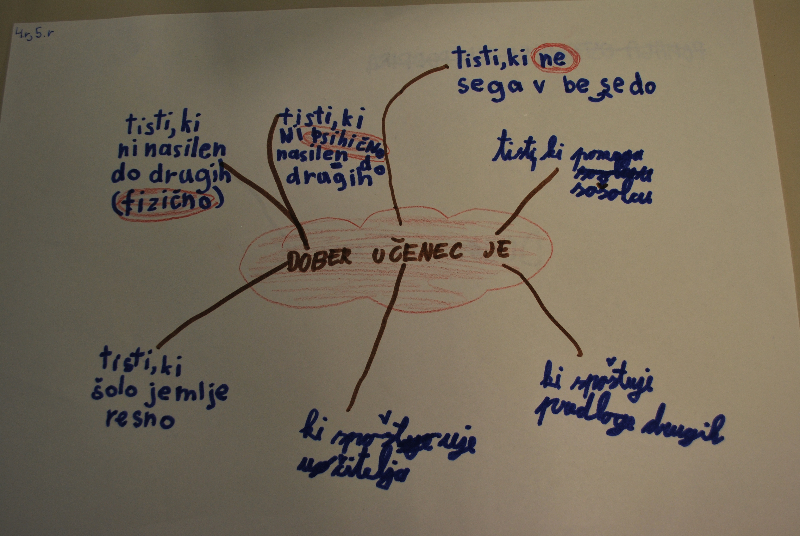 4.r, 5.r
tisti, ki ne
sega v besedo
tisti, ki
ni nasilen
do drugih
(fizično)
tisti, ki
ni psihično
nasilen do
drugih
tisti, ki pomaga
sošolcu
DOBER UČENEC JE
tisti, ki
šolo jemlje
resno
ki spoštuje
učitelja
ki spoštuje
predloge drugih